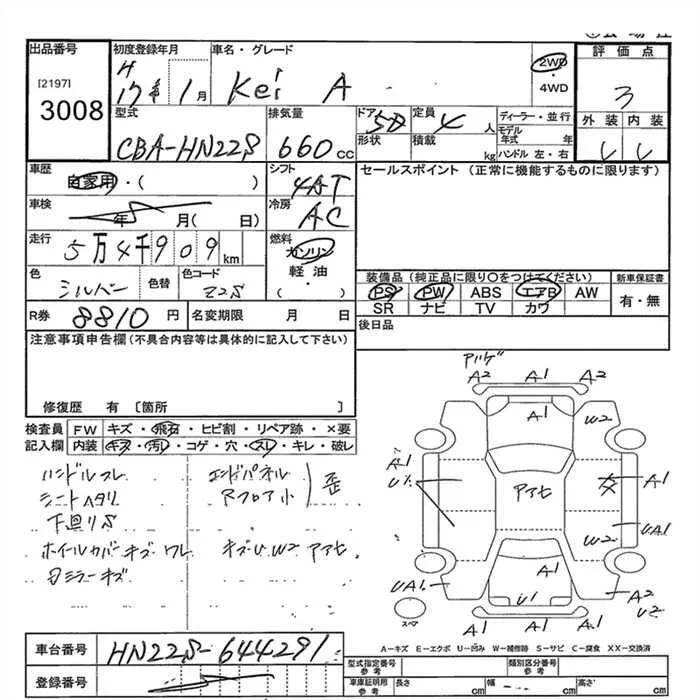 出品番号
[2197]
3008
初度登録年月
H
17年 1月
車名・グレード
Kei A
2WD
・
4WD
評価点
3
型式
CBA-HN22S
排気量
660cc
ドア 5D
形状
定員 4人
積載 kg
ディーラー・並行
モデル年式 年
ハンドル 左・右
外装 内装
車歴
自家用・( )
シフト
4AT
セールスポイント (正常に機能するものに限ります)
車検
年 月( 日)
冷房
AC
走行
5万4千909km
燃料
ガソリン
軽油
・
( )
色
シルバー
色替
色コード
Z2S
装備品 (純正品に限り○をつけてください)
新車保証書
PS PW ABS エアB AW
SR ナビ TV カワ
有・無
R券 8810円
名変期限 月 日
後日品
注意事項申告欄(不具合内容等は具体的に記入して下さい)
修復歴 有 [箇所 ]
検査員
記入欄
FW キズ・飛石・ヒビ割・リペア跡・×要
内装 キズ・汚レ・コゲ・穴・スレ・キレ・破レ
ハンドルスレ
シートヘタリ
下廻りS
ホイールカバーキズ ワレ
Dミラーキズ
エンドパネル
Rフロア小
歪
キズU W2 アアセ
A2 A1 A2
A1
W2
A1
アアセ
交
A1
UA1
W2
A1
UA1
U1
A2
U2
A1 A1 A1
スペア
A-キズ E-エクボ U-凹み W-補修跡 S-サビ C-腐食 XX-交換済
車台番号
HN22S-644291
登録番号
型式指定番号
参考
類別区分番号
参考
車庫証明用
参考
長さ cm
幅 cm
高さ cm